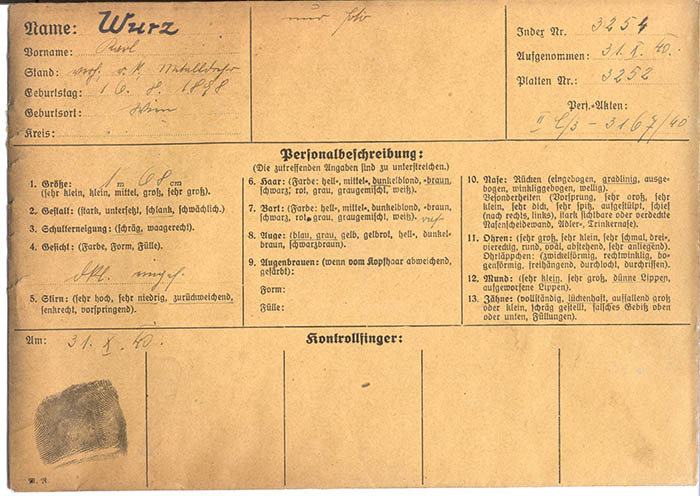 Name: Wurz
Vorname: Karl
Stand: verh. r. k. Metalldreher
Geburtstag: 16. 8. 1898
Geburtsort: Wien
Kreis:
nur foto
Index Nr. 3254
Aufgenommen: 31. X. 40.
Platten Nr.: 3252
Pers.-Akten:
II C/3 - 3167/40
Personalbeschreibung:
(Die zutreffenden Angaben sind zu unterstreichen.)
1. Größe: 1 m 68 cm
(sehr klein, klein, mittel, groß, sehr groß).
2. Gestalt: (stark, untersetzt, schlank, schwächlich.)
3. Schulterneigung: (schräg, waagerecht).
4. Gesicht: (Farbe, Form, Fülle).
dkl.
5. Stirn: (sehr hoch, sehr niedrig, zurückweichend,
senkrecht, vorspringend).
6. Haar: (Farbe: hell-, mittel-, dunkelblond, -braun,
schwarz, rot, grau, graugemischt, weiß).
7. Bart: (Farbe: hell-, mittel-, dunkelblond, -braun,
schwarz, rot, grau, graugemischt, weiß).
8. Auge: (blau, grau, gelb, gelbrot, hell-, dunkel-
braun, schwarzbraun).
9. Augenbrauen: (wenn vom Kopfhaar abweichend,
gefärbt):
Form:
Fülle:
10. Nase: Rücken (eingebogen, gradlinig, ausge-
bogen, winkliggebogen, wellig).
Besonderheiten (Vorsprung, sehr groß, sehr
klein, sehr dick, sehr spitz, aufgestülpt, schief
(nach rechts, links), stark sichtbare oder verdeckte
Nasenscheidewand, Adler-, Trinkernase).
11. Ohren: (sehr groß, sehr klein, sehr schmal, drei-
viereckig, rund, oval, abstehend, sehr anliegend).
Ohrläppchen: (zwickelförmig, rechtwinklig, bo-
genförmig, freihängend, durchlocht, durchrissen).
12. Mund: (sehr klein, sehr groß, dünne Lippen,
aufgeworfene Lippen).
13. Zähne: (vollständig, lückenhaft, auffallend groß
oder klein, schräg gestellt, falsches Gebiß oben
oder unten, Füllungen).
Am: 31. X. 40.
Kontrollfinger: